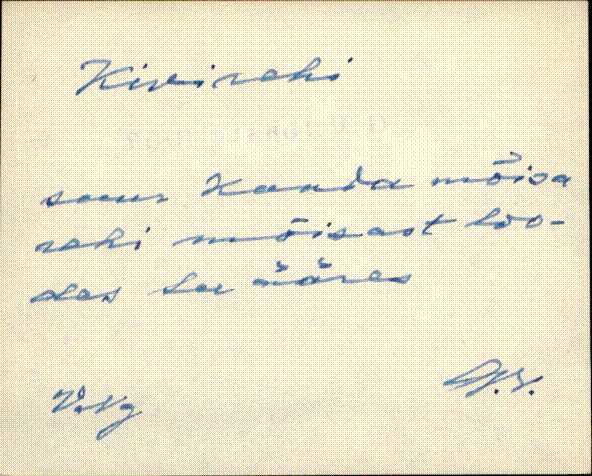 Kivirehi
suur Kanda mõisa
rehi mõisast loo-
des tee ääres
V.Ng